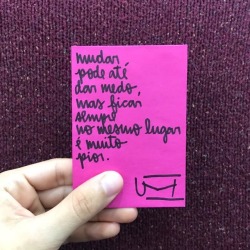 mudar
pode até
dar medo,
mas ficar
sempre
no mesmo lugar
é muito
pior.